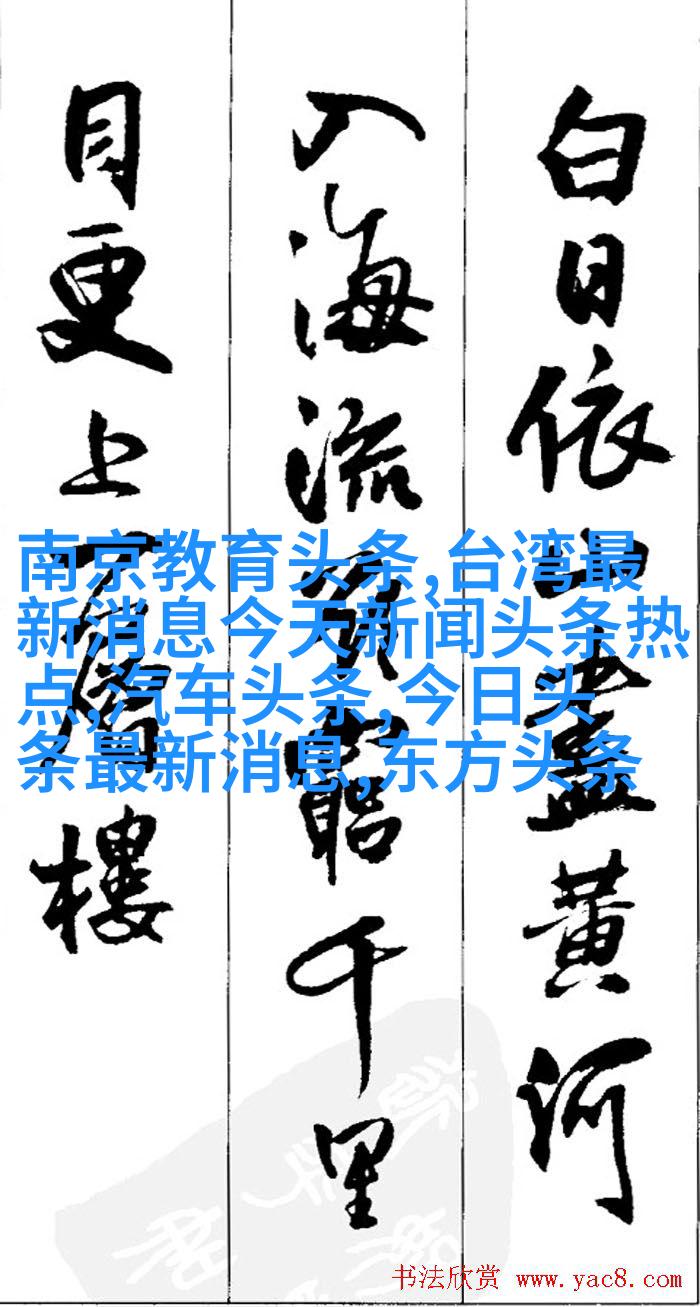 白日依山盡黄河
入海流欲窮千里
目更上一層樓
南京教育头条,台湾最
新消息今天新闻头条热
点,汽车头条,今日头
条最新消息,东方头条
书法欣赏 www.yac8.com